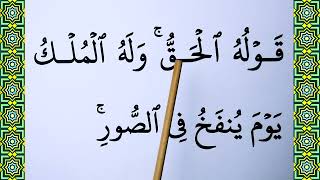 قَوۡلُهُ ٱلۡحَـقُّ ۚ وَلَهُ ٱلۡمُلۡكُ
يَوۡمَ يُنفَخُ فِى ٱلصُّورِ ۚ